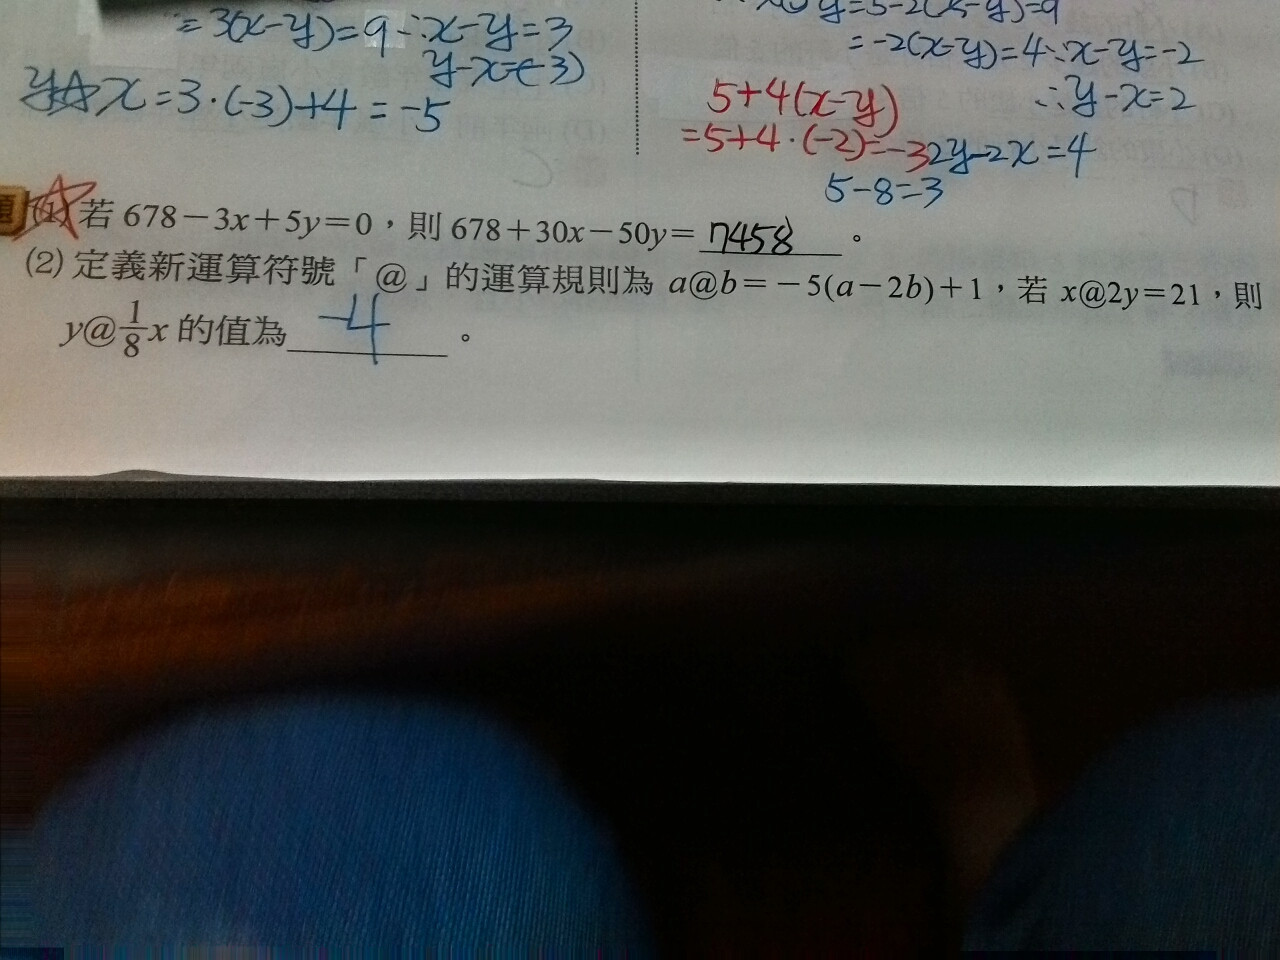 = 3(x-y)=9 ∴x-y=3
y-x=(-3)
x=3·(-3)+4=-5
y=5-2(x-y)=9
=-2(x-y)=4∴x-y=-2
∴y-x=2
5+4(x-y)
=5+4·(-2)=-3
2y-2x=4
5-8=3
題 (1) 若 678-3x+5y=0，則 678+30x-50y= 7458 。
(2) 定義新運算符號「@」的運算規則為 a@b=-5(a-2b)+1，若 x@2y=21，則
y@1/8x 的值為 -4 。